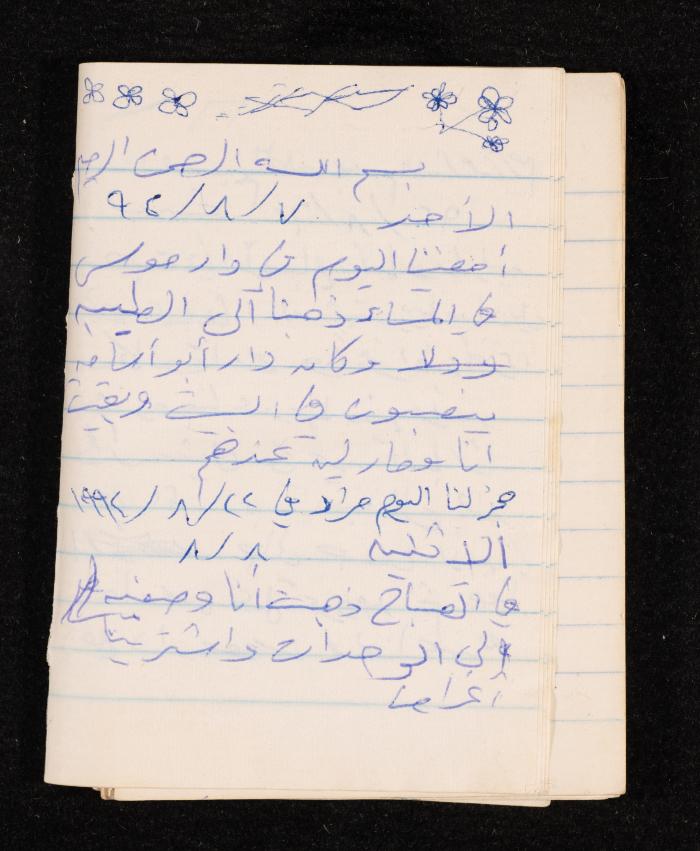 بسم الله الرحمن الرحيم
الأحد ٧/٨/٩٤
أمضينا اليوم في دار موسى
في المساء ذهبنا إلى الطيبه
وكان دار أبو أسامه
ينصبون في البيت وبقيت
أنا عندهم
حجز لنا اليوم مراد في ٢٢/٨/١٩٩٤
الاثنين ٨/٨
في الصباح ذهبت أنا وصفيه
إلى الوحدات واشترينا
أغراضا